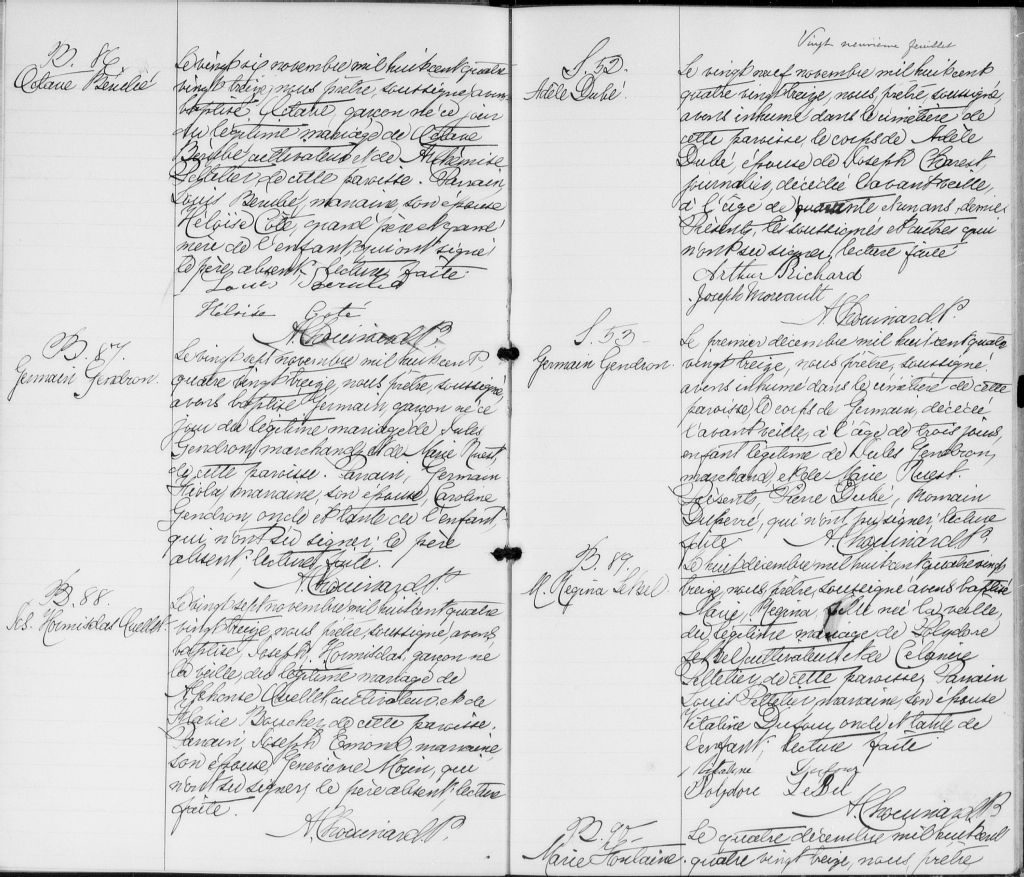 B. 86
Octave Bérubé
Le vingt six novembre mil huit cent quatre
vingt treize, nous, prêtre, soussigné, avons
baptisé Octave, garçon né ce jour
du légitime mariage de Octave
Berubé, cultivateur et de Arthémise
Pelletier de cette paroisse. Parrain,
Louis Berubé, marraine, son épouse
Héloïse Coté, grand père et grand
mère de l'enfant, qui ont signé
le père, absent. Lecture faite.
Louis Berubé
Héloise Coté
A. Chouinard P.
B. 87.
Germain Gendron.
Le vingt sept novembre mil huit cent,
quatre vingt treize, nous, prêtre, soussigné,
avons baptisé Germain, garçon né ce
jour du légitime mariage de Jules
Gendron, marchand, et de Marie Ruest,
de cette paroisse. Parrain, Germain
marraine, son épouse, Caroline
Gendron, oncle et tante de l'enfant,
qui n'ont su signer, le père
absent, lecture faite.
A. Chouinard P.
B. 88.
Js. Hormisdas Ouellet.
Le vingt sept novembre mil huit cent quatre
vingt treize, nous, prêtre, soussigné, avons
baptisé, Joseph, Hormisdas, garçon né
la veille, du légitime mariage de
Alphonse Ouellet, cultivateur, et de
Marie Boucher, de cette paroisse.
Parrain, Joseph Emond, marraine,
son épouse, Geneviève Morin, qui
n'ont su signer, le père absent, lecture
faite.
A. Chouinard P.
Vingt neuvième feuillet
S. 52.
Adèle Dubé.
Le vingt neuf novembre mil huit cent
quatre vingt treize, nous, prêtre, soussigné,
avons inhumé dans le cimetière de
cette paroisse, le corps de Adèle
Dubé, épouse de Joseph Charest,
journalier, décédée l'avant veille,
à l'âge de quarante et un ans, demie
Présents, les soussignés et autres qui
n'ont su signer, lecture faite
Arthur Richard
Joseph Moreault
A. Chouinard P.
S. 53
Germain Gendron
Le premier décembre mil huit cent quatre
vingt treize, nous, prêtre, soussigné
avons inhumé dans le cimetière de cette
paroisse, le corps de Germain, décédé
l'avant veille, à l'âge de trois jours,
enfant légitime de Jules Gendron,
marchand, et de Marie Ruest.
Présents, Pierre Dubé, Romain
Duperré, qui n'ont pu signer, lecture
faite. A. Chouinard P.
B. 89.
M. Régina LeBel
Le huit décembre mil huit cent quatre vingt
treize, nous, prêtre, soussigné avons baptisé
Marie, Regina, fille née la veille,
du légitime mariage de Polydore
LeBel, cultivateur, et de
Pelletier, de cette paroisse, Parrain
Louis Pelletier, marraine, son épouse
Vitaline Dufour, oncle et tante de
l'enfant, lecture faite
Vitaline Dufour
Polydore LeBel
A. Chouinard P.
B. 90
Marie Fontaine.
Le quatre décembre mil huit cent
quatre vingt treize, nous, prêtre,